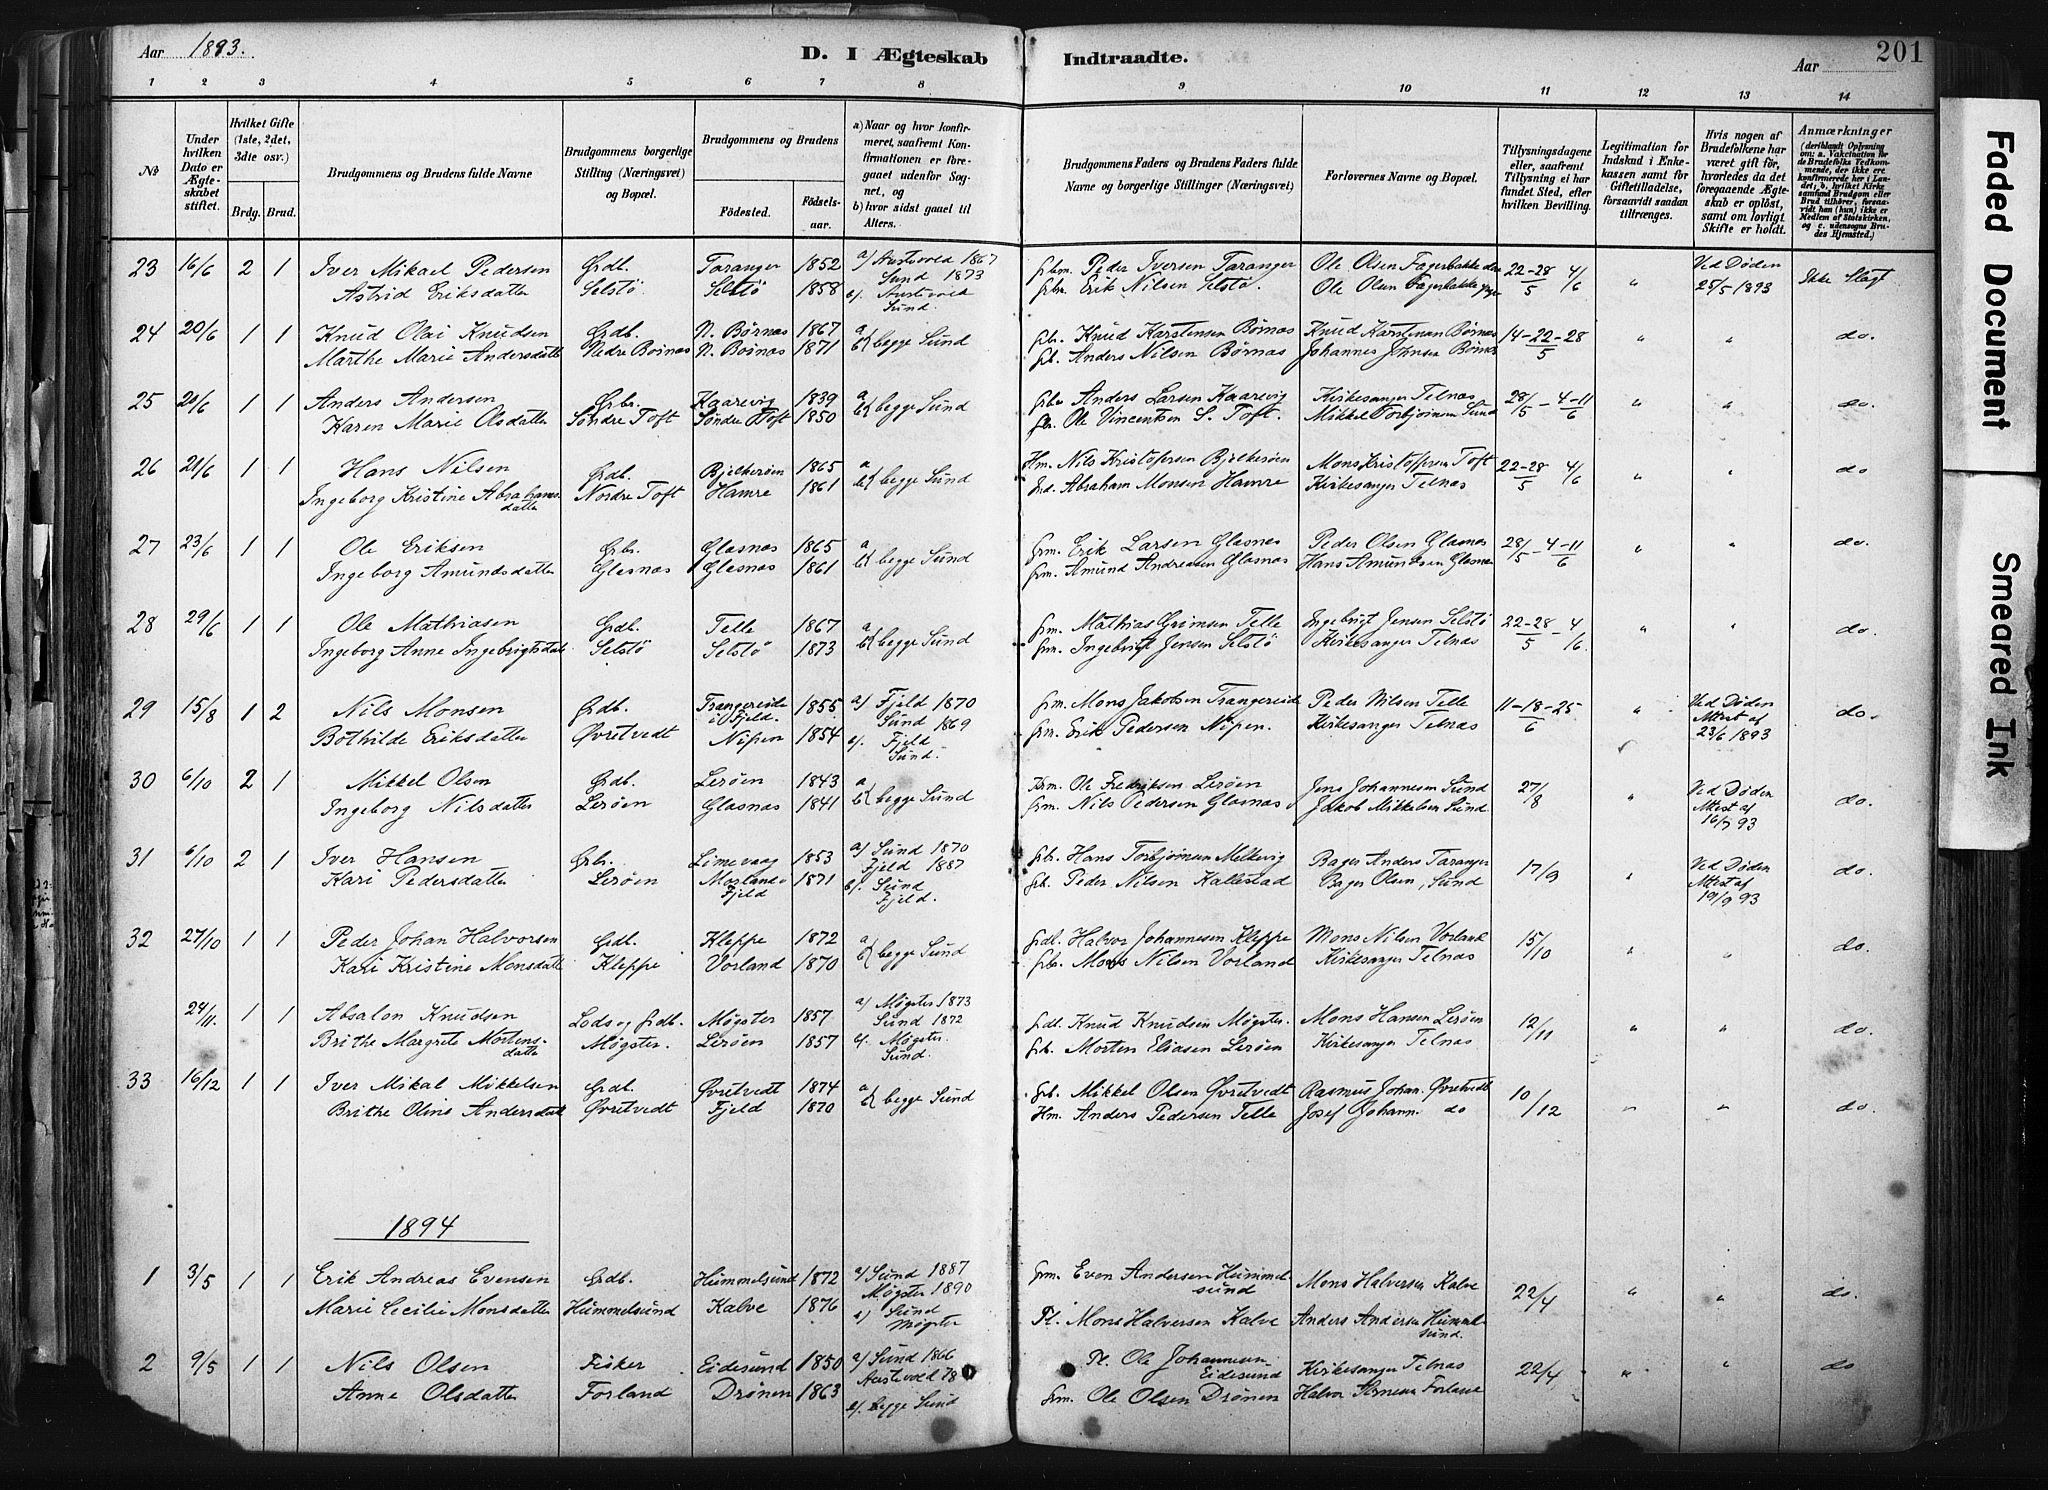 Aar 1893.
D. I Ægteskab Indtraadte.
Aar
201
1 2 3 4 5 6 7 8 9 10 11 12 13 14
№
Under hvilken Dato er Ægteskabet stiftet.
Hvilket Gifte (1ste, 2det, 3die osv.)
Brdg. Brud.
Brudgommens og Brudens fulde Navne
Brudgommens borgerlige Stilling (Næringsvei) og Bopæl.
Brudgommens og Brudens
Fødested.
Fødselsaar.
a) Naar og hvor konfirmeret, saafremt Konfirmationen er foregaaet udenfor Sognet, og
b) hvor sidst gaaet til Alters.
Brudgommens Faders og Brudens Faders fulde Navne og borgerlige Stillinger (Næringsvei)
Forlovernes Navne og Bopæl.
Tillysningsdagene eller, saafremt Tillysning ei har fundet Sted, efter hvilken Bevilling.
Legitimation for Indskud i Enkekassen samt for Giftetilladelse, forsaavidt saadan tiltrænges.
Hvis nogen af Brudefolkene har været gift før, hvorledes da det foregaaende Ægteskab er opløst, samt om lovligt Skifte er holdt.
Anmærkninger (deriblandt Oplysning om: a. Vakcination for de Brudefolks Vedkommende, der ikke ere konfirmerede her i Landet; b. hvilket Kirkesamfund Brudgom eller Brud tilhører, forsaavidt han (hun) ikke er Medlem af Statskirken, og c. udensogns Brudes Hjemsted.)
23 16/6 2 1 Iver Mikael Pedersen Grdb. Taranger 1852 a/ Austevold 1867 Grbm. Peder Iversen Taranger Ole Olsen Fagerbakke 22-28/5 4/6 " Ved Døden Ikke Slægt
Astrid Eriksdatter Selstö Selstö 1858 Sund 1873 Erik Nilsen Selstö Ole Olsen Fagerbakke 25/5 1893
b/. Austevold
Sund.
24 20/6 1 1 Knud Olai Knudsen Grdb. N. Børnas 1867 a b begge Sund Knud Karstensen Børnas Knud Karstensen Børnas 14-22-28/5 " " do.
Marthe Marie Andersdatter Nedre Børnas N. Børnas 1871 Anders Nilsen Børnas Johannes Johnsen Børnas
25 21/6 1 1 Anders Andersen Grbr. Kaarevig 1839 a b begge Sund Anders Larsen Kaarevig Kirkesanger Telnas 28/5-4-11/6 " " do.
Karen Marie Olsdatter Søndre Toft Søndre Toft 1850 Ole Vincentsen S. Toft. Mikkel Torbjörnsen Sund
26 21/6 1 1 Hans Nilsen Grdb. Bjelkerøen 1865 a b begge Sund Hm. Nils Kristofersen Bjelkerøen Mons Kristoffersen Toft 22-28/5 4/6 " " do
Ingeborg Kristine Abrahamsdatter Nordre Toft Hamre 1861 Ind. Abraham Monsen Hamre Kirkesanger Telnas
27 23/6 1 1 Ole Eriksen Grbr. Glasnas 1865 a b begge Sund Grm. Erik Larsen Glasnas Peder Olsen Glasnas 28/5-4-11/6 " " do.
Ingeborg Amundsdatter Glasnas Glasnas 1861 Grm. Amund Andreasen Glasnas Hans Amundsen Glasnas
28 29/6 1 1 Ole Mathiasen Grdb. Telle 1867 a b begge Sund Grm. Mathias Grimsen Telle Ingebrigt Jensen Selstö 22-28/5-4/6. " " do.
Ingeborg Anne Ingebrigtsdatt Selstö Selstö 1873 Grm. Ingebrigt Jensen Selstö Kirkesanger Telnas
29 15/8 1 2 Nils Monsen Grdb. Trangereide i Fjeld. 1855 a/ Fjeld 1870 Grm. Mons Jakobsen Trangereid Peder Nilsen Telle 11-18-25/6 " Ved Døden do.
Bothilde Eriksdatter Øvretvedt Nipen 1854 Sund 1869 Grm. Erik Pedersen Nipen. Kirkesanger Telnas Attest af
b/. Fjeld 23/6 1893
Sund.
30 6/10 2 1 Mikkel Olsen Grdb. Lerøen 1843 a b begge Sund Ole Fredriksen Lerøen Jens Johannesen Sund 27/8 " Ved Døden do.
Ingeborg Nilsdatter Lerøen Glasnas 1841 Grm. Nils Pedersen Glasnas Jakob Mikkelsen Sund. Attest af
16/7 93
31 6/10 2 1 Iver Hansen Grbr. Limevaag 1853 a/ Sund 1870 Grb. Hans Torbjörnsen Melkevig Bager Anders Taranger 17/9 " Ved Døden do.
Kari Pedersdatter Lerøen Morland Fjeld 1871 Fjeld 1887 Grb. Peder Nilsen Kallestad Bager Olsen, Sund Attest af
b/. Sund 19/9 93
Fjeld.
32 27/10 1 1 Peder Johan Halvorsen Grdb. Kleppe 1872 a b begge Sund Grdb. Halvor Johannesen Kleppe Mons Nilsen Vorland 15/10 " " do.
Kari Kristine Monsdatt Kleppe Vorland 1870 Grb. Mons Nilsen Vorland Kirkesanger Telnas
24/11. 1 1 Absalon Knudsen Lods og Grdb. Møgster 1857 a/ Møgster 1873 Grdb. Knud Knudsen Møgster. Mons Hansen Lerøen 12/11 " " do.
Brithe Margrete Mortensdatter Møgster. Lerøen 1857 Sund 1872 Grb. Morten Eliasen Lerøen Kirkesanger Telnas
b/. Møgster.
Sund.
33 16/12 1 1 Iver Mikal Mikkelsen Grdb. Øvretvedt 1874 a b begge Sund Grb. Mikkel Olsen Øvretvedt Rasmus Johan. Øvretvedt 10/12 " " do.
Brithe Oline Andersdatt Øvretvedt Fjeld 1870 Hm. Anders Pedersen Telle Josef Johann. do
1894
1 3/5 1 1 Erik Andreas Evensen Grdb. Hummelsund 1872 a/ Sund 1887 Grm. Even Andersen Hummelsund Mons Halversen Kalve 22/4 " " do.
Marie Cecilie Monsdatter Hummelsund Kalve 1876 Møgster 1890 Pl. Mons Halversen Kalve Anders Andersen Hummelsund.
b) Sund
Møgster
2 9/5 1 1 Nils Olsen Fisker Eidesund 1850 a/ Sund 1866 Pl. Ole Johannesen Eidesund Kirkesanger Telnas 22/4 " " do
Anne Olsdatter Forland Drönen 1863 Austevold 78 Grm. Ole Olsen Drönen Halvor Forland
b/. begge Sund
Faded Document
Smeared Ink